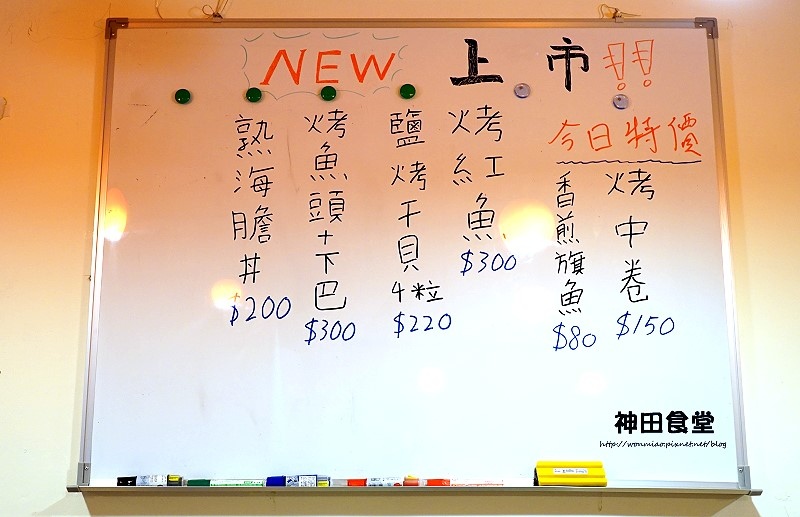 NEW 上市!!
今日特價
烤中卷
$150
香煎旗魚
$80
烤紅魚
$300
鹽烤干貝4粒
$220
烤魚頭+下巴
$300
熟海膽丼
$200
神田食堂
http://wonmiao.pixnet.net/blog